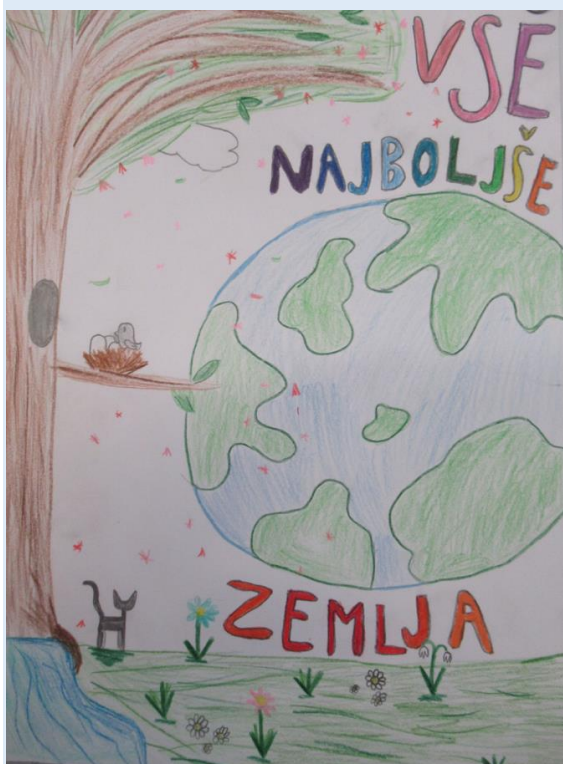 VSE
NAJBOLJŠE
ZEMLJA